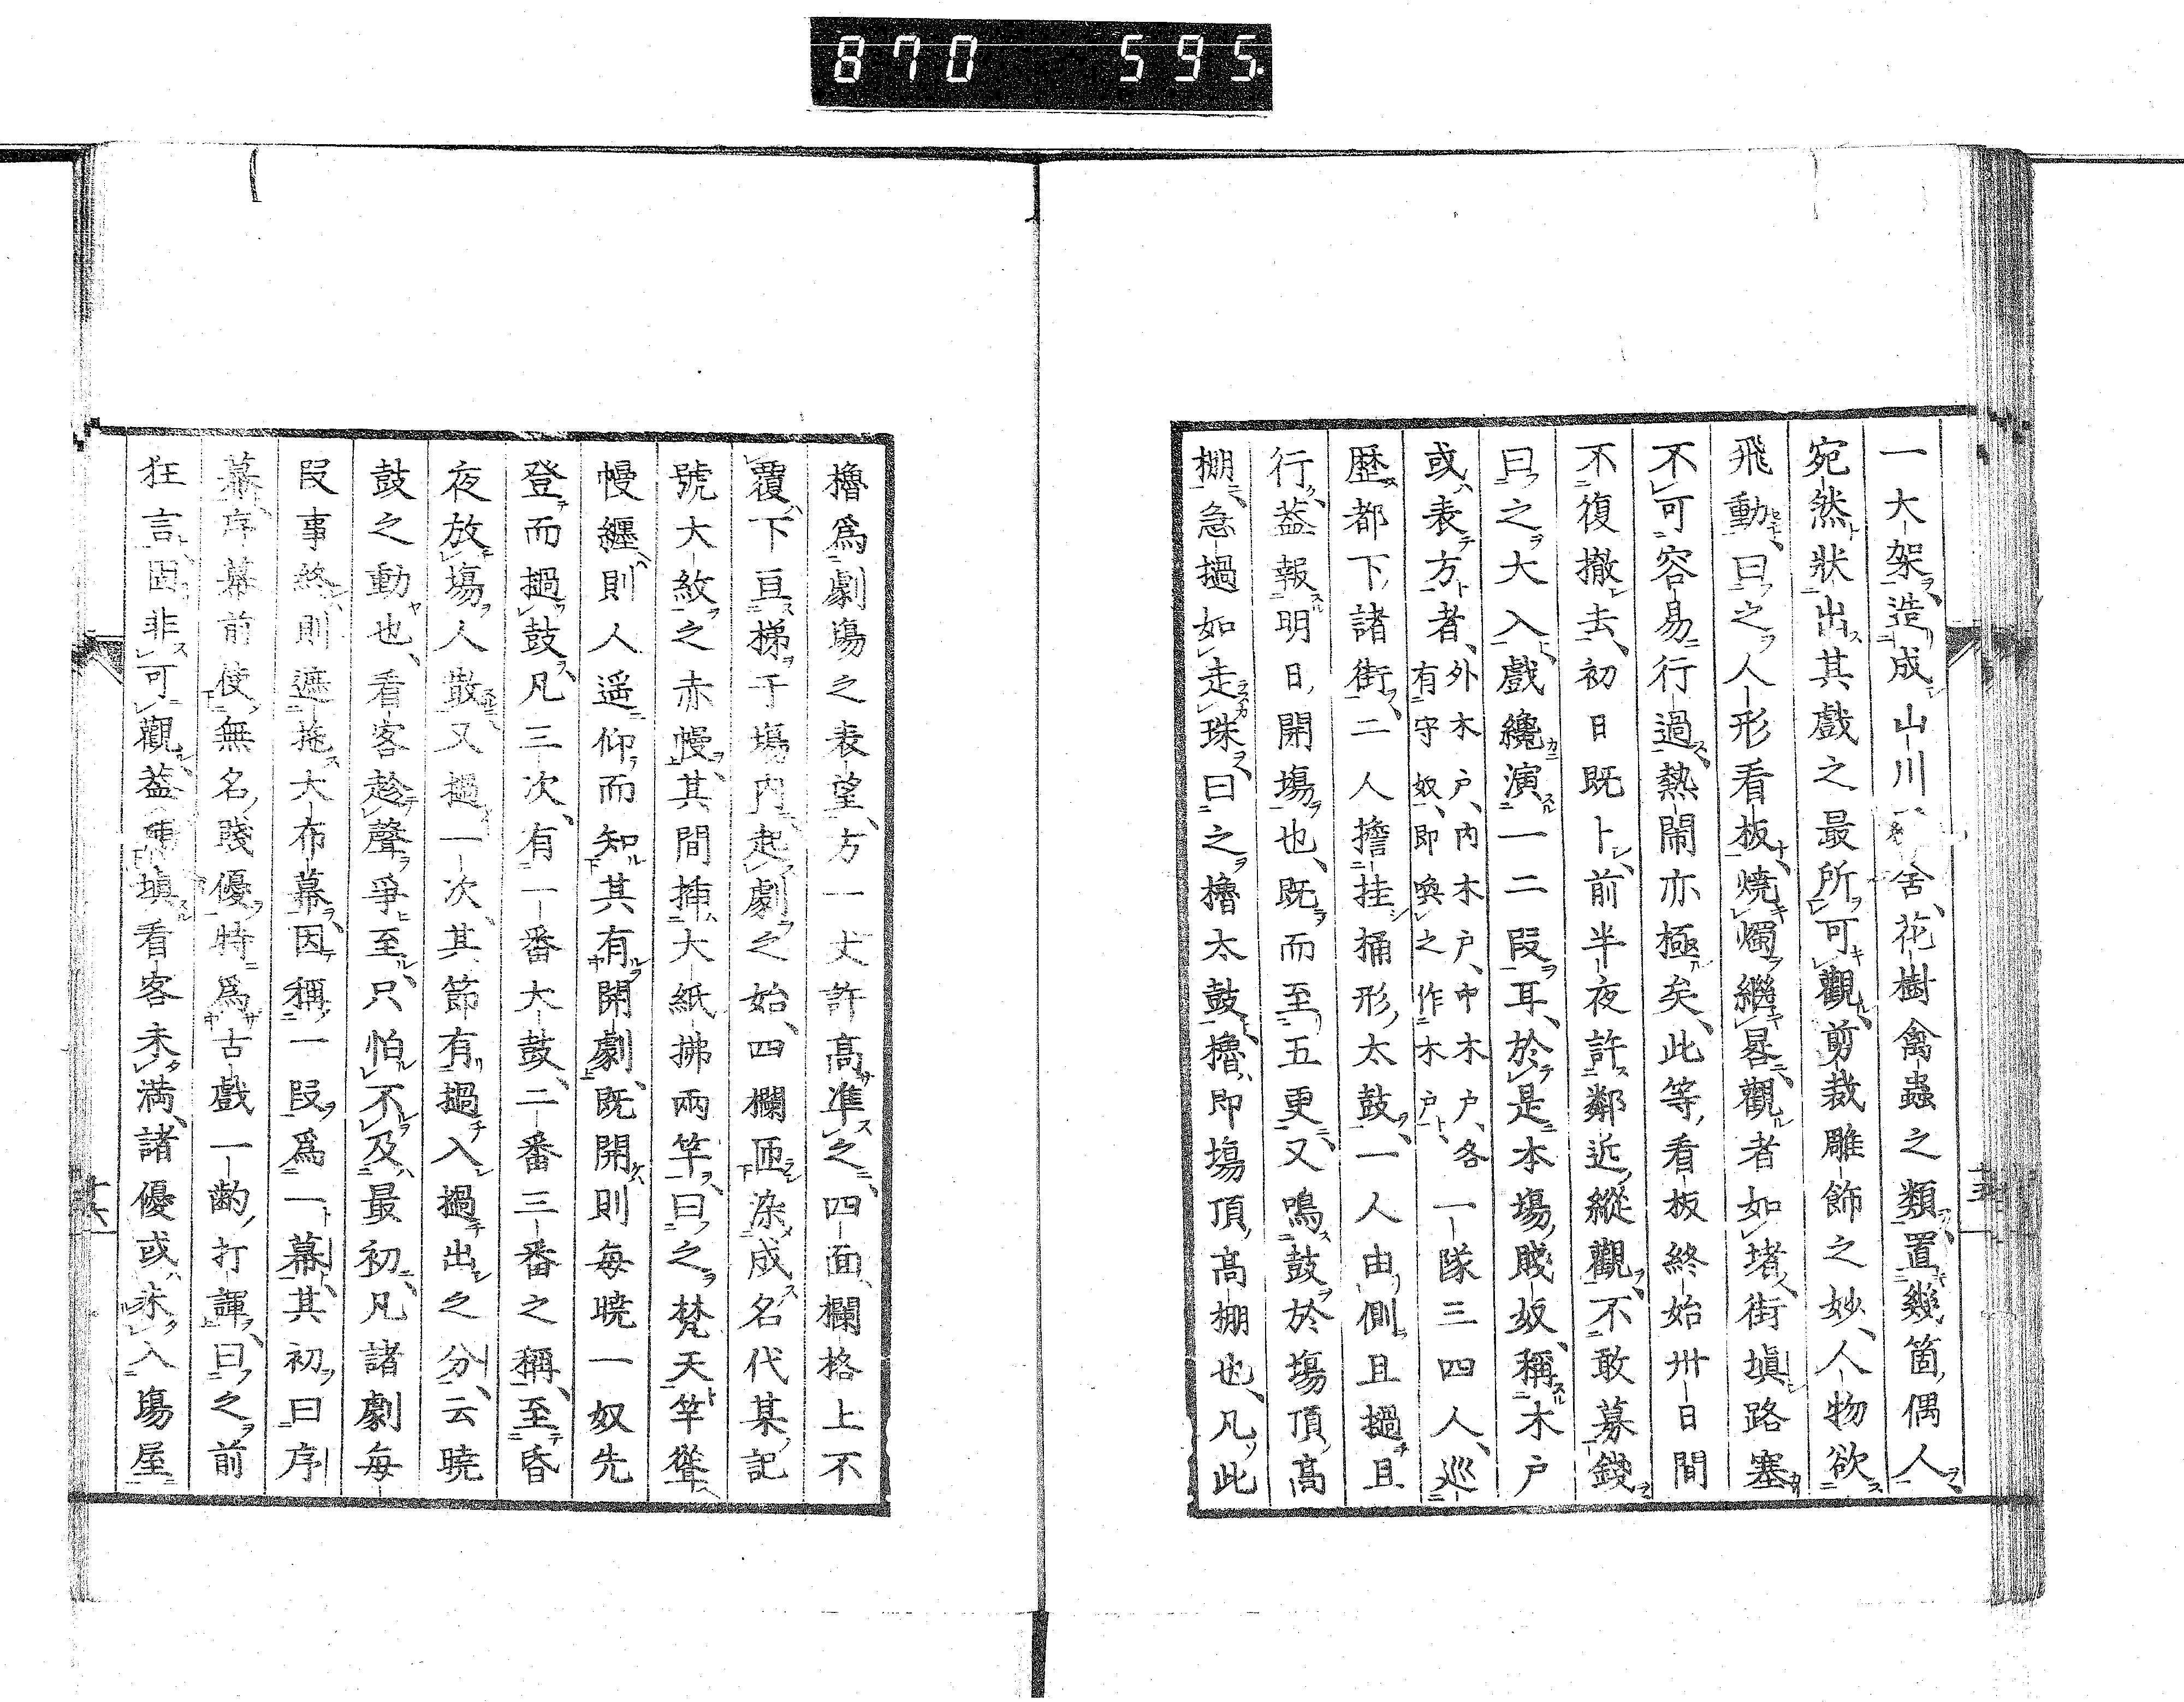 870 595.
一大架造成山川舍、花樹禽蟲之類置幾箇、偶人
宛然狀出其戲之最所可觀、剪裁雕飾之妙、人物欲
飛動、曰之人形看板、燒燭繼晷、觀者如堵、街塡路塞
不可容易行過、熱鬧亦極矣、此等、看板終始卅日間
不復撤去、初日既卜、前半夜許鄰近縱觀、不敢募錢
曰之大入、戲纔演一二段耳、於是本塲、賤奴、稱木戶
或表方者、外木戶、內木戶、中木戶、各有守奴、即喚之作木戶、一隊三四人、巡
歷都下、諸街、二人擔挂桶形、太鼓、一人由側、且撾且
行、葢報明日、開塲也、既而至五更、又鳴鼓於塲頂、高
棚、急撾如走珠、曰之櫓太鼓、櫓、即塲頂、高棚也、凡此
櫓爲劇塲之表望、方一丈許高準之、四面、欄格上不
覆、下亘梯于塲內、起劇之始、四欄匝染成名代某、記
號大紋之赤幔、其間揷大紙拂兩竿、曰之梵天竿聳、
幔纏則人遥仰而知其有開劇、既開、則每曉一奴先
登而撾鼓、凡三次、有一番大鼓、二番三番之稱、至昏
夜放塲、人散又撾一次、其節有撾入撾出之分、云曉
鼓之動也、看客趁聲爭至、只怕不及、最初、凡諸劇每
段事終則遮掩大布幕、因稱一段爲一幕、其初、曰序
幕、序幕前使無名、賤優特爲古戲一齣、打諢、曰之前
狂言、固非可觀、葢塡看客未滿、諸優或未入塲屋
十五
十六